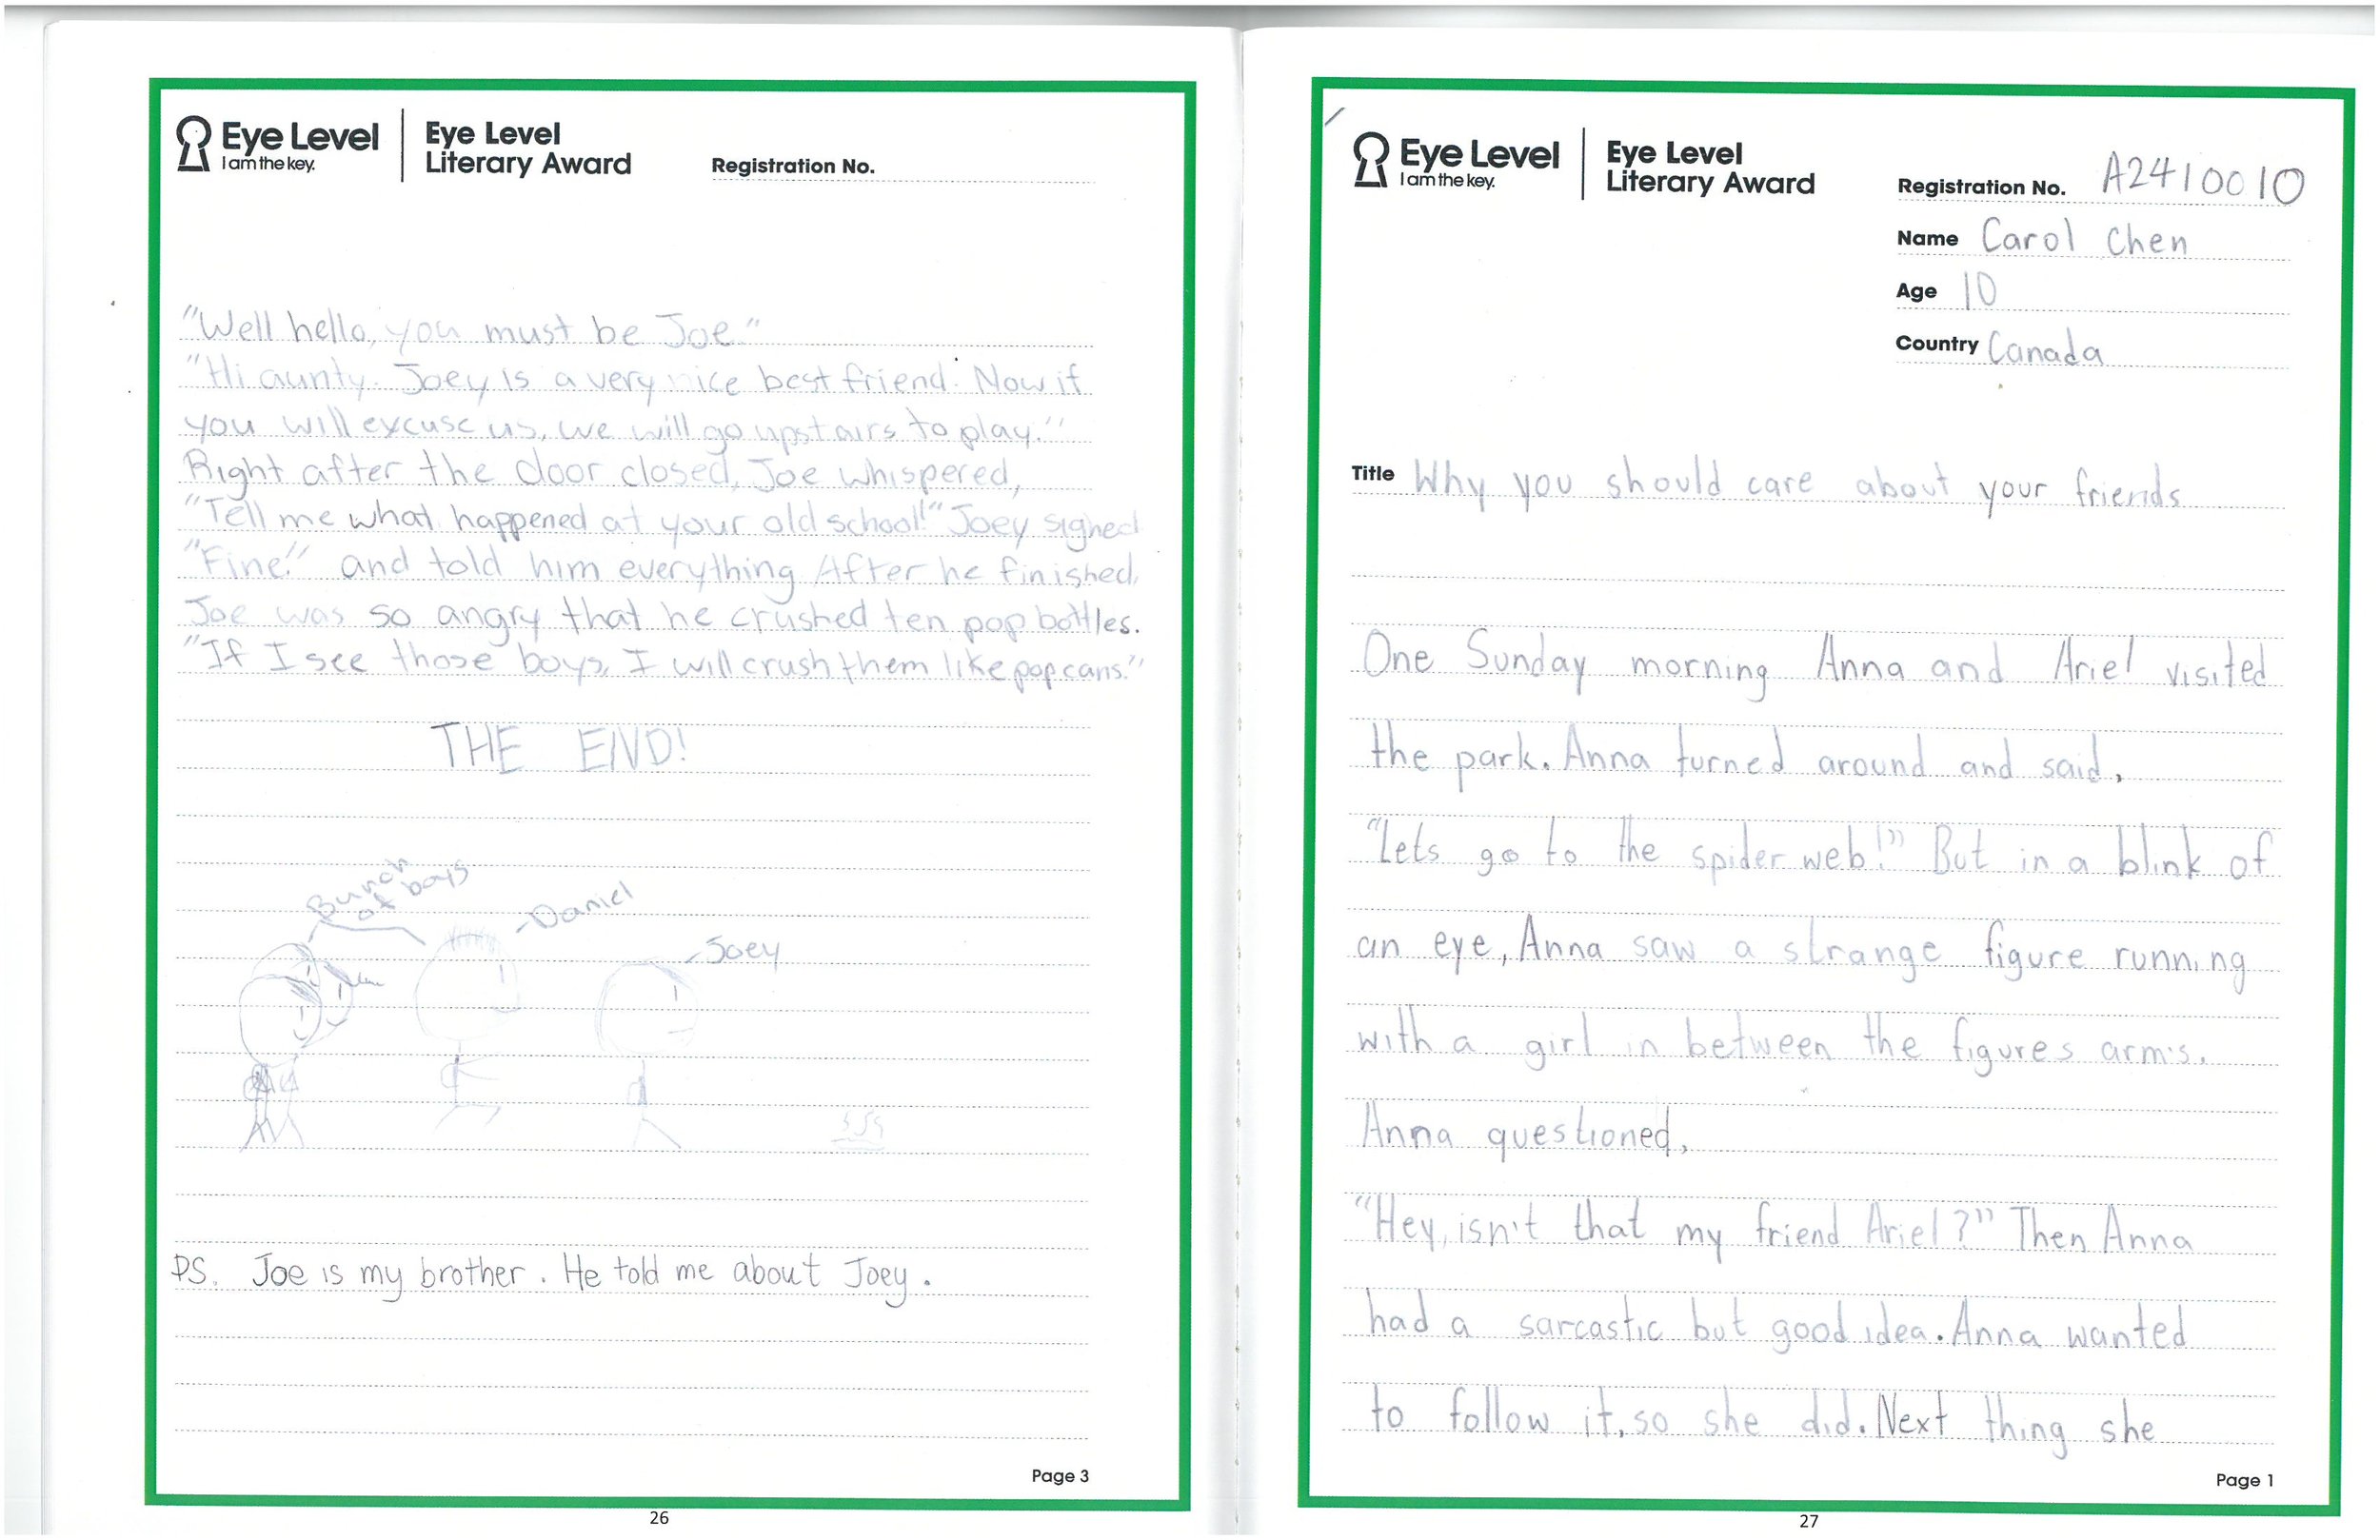 Eye Level
I am the key.
Eye Level
Literary Award
Registration No.
"Well hello, you must be Joe"
"Hi aunty. Joey is a very nice best friend. Now if
you will excuse us, we will go upstairs to play."
Right after the door closed, Joe whispered,
"Tell me what happened at your old school!" Joey signed
"Fine!" and told him everything After he finished,
Joe was so angry that he crushed ten pop bottles.
"If I see those boys, I will crush them like pop cans."
THE END!
Bunch
of boys
-Daniel
-Joey
PS. Joe is my brother. He told me about Joey.
Page 3
26
Eye Level
I am the key.
Eye Level
Literary Award
Registration No. A2410010
Name Carol Chen
Age 10
Country Canada
Title Why you should care about your friends
One Sunday morning Anna and Ariel visited
the park. Anna turned around and said,
"Lets go to the spider web!" But in a blink of
an eye, Anna saw a strange figure running
with a girl in between the figures arms.
Anna questioned,
"Hey, isn't that my friend Ariel?" Then Anna
had a sarcastic but good idea. Anna wanted
to follow it, so she did. Next thing she
Page 1
27